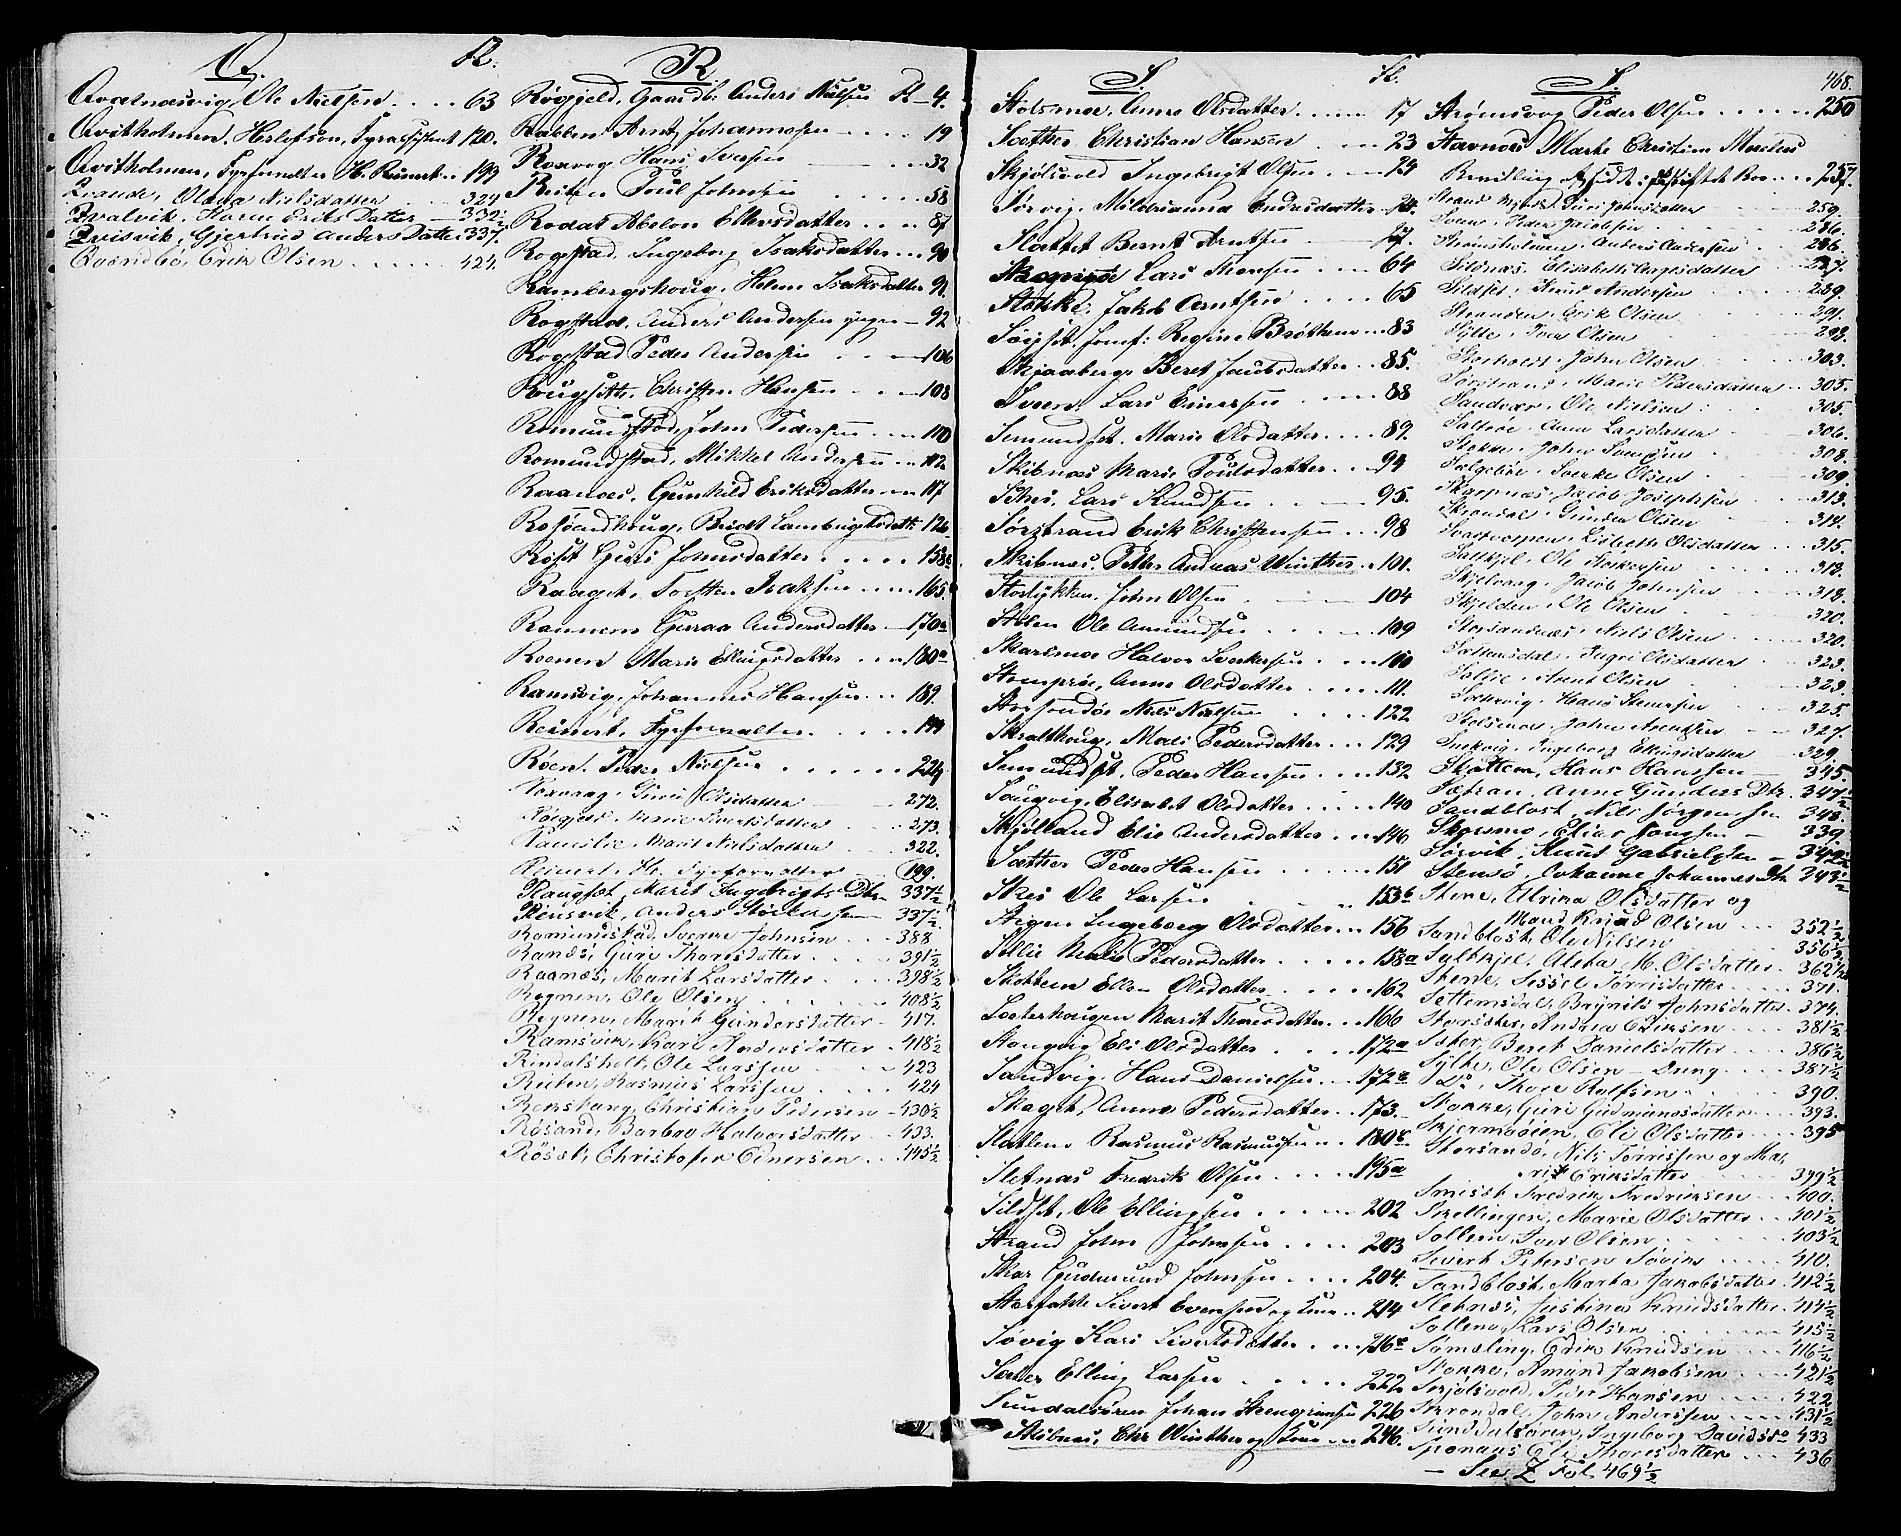 Q.
R.
Qvitholmen, Herlofson, Fyrassistent 120.
Qvitholmen, Fyrforvalter H. Reinert 199
Qvande, Olava Nielsdatter 324
Qvalvik, Karen Eriks Datter 332½
Qvisvik, Gjertrud Anders Datter 337½
Qvendbø, Erik Olsen 424.
R. Fol.
Røgjeld, Gaardbr. Anders Nielsen 4.
Rabben Arnt Johannesen 19
Roxvog Hans Iversen 32
Reiten Poul Johnsen 58
Rodal Abelon Ellevsdatter 87
Rogstad, Ingeborg Isaksdatter 90
Rambergshoug, Helene Isaksdatter 91.
Rogstad, Anders Andersen yngre 92
Rogstad Peder Andersen 106
Rougset. Christen Hansen 108
Romundstad, John Pedersen 110
Romundstad, Mikkel Andersen 112
Raanæs, Gunhild Eriksdatter 117
Rosandhoug, Beret Lambrigtsdatt. 126
Røst Guri Johnsdatter 158
Raaget, Torsten Isaksen 165.
Rannem Guraa Andersdatter 170a
Roenen Marie Ellingsdatter 180a
Ramsvig, Johannes Hansen 189.
Reinert, Fyrforvalter 199
Røen, Peder Nielsen 224
Roxvaag, Guru Olsdatter 272.
Røgjeld, Marie Sivertsdatter 273.
Ramslie, Marit Nielsdatter 322.
Reinert, H. Fyrforvalter 199.
Raugset, Marit Ingebrigts Dtr 337½
Rensvik, Anders Størkersen 337½
Romundstad, Sverke Johnsen 388
Rands, Guri Thoresdatter 391½
Raanæs, Marit Larsdatter 398½
Rognen, Ole Olsen 408½
Rognen, Marit Gundersdatter 417.
Ramsvik, Kari Andersdatter 418½
Rindalsholt, Ole Larssen 423
Reiten, Rasmus Larssen 424
Rokstang, Christian Pedersen 430½
Røsand, Barbro Halvorsdatter 433.
Røsst, Christofer Einersen 445½
S. Fol.
Stolsmoe, Anne Olsdatter 17
Sæther Christian Hansen 23
Skjølsvold Ingebrigt Olsen 24
Sørvig, Mildrianna Endresdatter
Slattet Bernt Arntsen
Lars Thoresen 64
Stokke, Jakob Arntsen 65
Jomf: Regine Brøthen 83
Skjaaberg, Beret Jacobsdatter 85.
Sveen, Lars Einersen 88
Semundset, Marie Olsdatter 89.
Skibnæs Marie Poulsdatter 94
Lars Knudsen 95.
Sørstrand Erik Christensen 98
Skibnæs, Peter Andreas Winther 101.
Storlykken, John Olsen 104
Stolen Ole Amundsen 109
Skarsmoe Halvor Sverkesen 110
Stomprøe, Anne Olsdatter 111.
Storsandøe Niels Nielsen 122
Skralthoug, Mali Pedersdatter 129
Semundset, Peder Hansen 132
Saugvig, Elisabet Olsdatter 140
Skjølland Elie Andersdatter 146
Sæther Peder Hansen 151
Skei Ole Larsen 153b
Stigen Ingeborg Olsdatter 156
Sellie Malie Pedersdatter 158a
Skottem Ellen Olsdatter 162
Sæterhaugen Marit Thoresdatter 166
Stangvig Eli Olsdatter 172a
Sandvig, Hans Danielsen 172
Skaget, Anne Pedersdatter 173.
Slatlem Rasmus Rasmussen 180
Sletnæs Fredrik Olsen 195a
Sildset, Ole Ellingsen 202
Strand John Johnsen 203
Skar Gudmund Johnsen 204.
Storfalde Sivert Evensen og Kone 214
Søvig Kari Sivertsdatter 216
Sæter Elling Larsen 222
Sundalsøren Johan Steengrimsen 226
Skibnæs, Chr Winther og Kone 246.
S. 468.
Strømsvog Peder Olsen 250
Stavnes Marthe Christine Mechus
257.
Strand Guri Johnsdatter 259.
Sveen, Peder Jacobsen 286.
Steinsholmen, Anders Andersen 286.
Sildnæs, Elisabeth Børgesdatter 287.
Sildset, Knut Andersen 289.
Stranden, Erik Olsen 291.
Sylte, Iver Olsen 298.
Storholt, John Olsen 303.
Sørstrand, Marie Pedersdatter 305.
Sandvær, Ole Nielsen 305.
Saltrøe, Anne Larsdatter 306.
Stokke, John Svendsen 308.
Solgebøe, Sverke Olsen 309.
Skarpnæs, Jacob Josephsen 313.
Skrondal, Gunder Olsen 314.
Lisbeth Olsdatter 315.
Saltkjel, Ole Størkersen 318.
Skjelvaag, Jacob Johnsen 318.
Skjelden, Ole Olsen 320.
Storsandnæs, Niels Olsen 320.
Settemsdal, Ingri Olsdatter 323.
Sollie, Arent Olsen 323.
Solhvig, Hans Steversen 325.
Stolsmoe, John Arentsen 327.
Snekvig, Ingeborg Ellingsdatter 329.
Skottem, Hans Hanssen 345.
Sætran, Anne Gunders Dtr. 347½
Sandblost, Nils Jørgensen 348.
Skarsmo, Elias Jonssen 339.
Sørvik, Knut Gabrielsen
Stensø, Johanne Johannes Dtr 343½
Stene, Ulrika Olsdatter og
Mand Knud Olsen 352½
Sandblost, Ole Nilsen 356½
Syltkjel, Aleta M. Olsdatter 362½
Stene, Sessel Tørrisdatter 371.
Settemsdal, Brynild Johnsdatter 374.
Storsæter, Andrea Eriksen 381½
Sæter, Beret Danielsdatter 386½
Sylte, Ole Olsen – Dreng 387½
Do, Thore Rolfsen 390.
Stokke, Guri Gudmundsdatter 393.
Skjermoeien, Eli Olsdatter 395
Storsandø, Nils Tørrissen og Ma-
rit Eriksdatter 399½
Smisst Fredrik Fredriksen 400.
Skellingen, Marie Olsdatter 401½
Sollem, Iver Olsen 403½
Sivert Petersen Søvik 410.
Sandblost, Marta Jakobsdatter 412½
Sletnæs, Justina Knudsdatter 414½
Sollem, Lars Olsen 415½
Sæmeling, Erik Knudsen 416½
Stokke, Amund Jakobsen 421½
Skjølsvold, Peder Hansen 422
Skrondal, John Andersen 431½
Sunddalsøren, Ingeborg Davidsd 433
Sponaas Eli Thoresdatter 436
— See Z Fol 469½